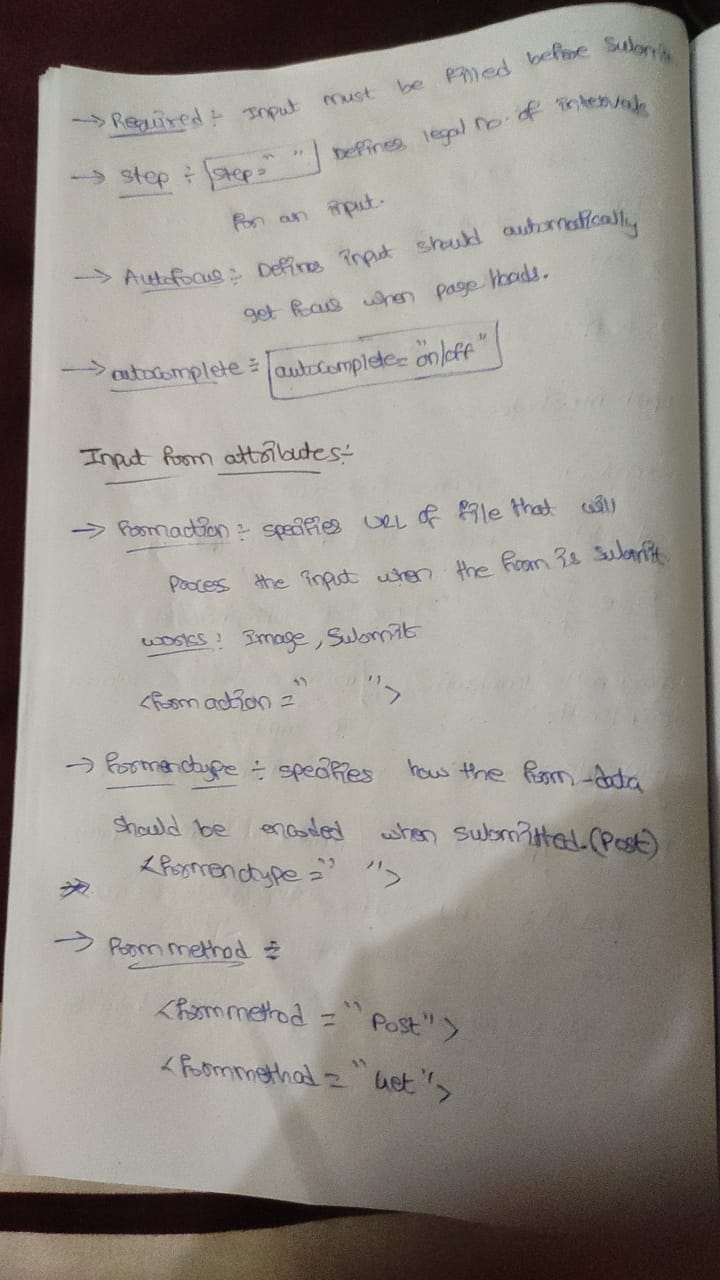 → Required :- Input must be filled before submit
→ step :- step=" " Defines legal no. of intervals
for an input.
→ Autofocus :- Defines input should automatically
get focus when page loads.
→ autocomplete :- autocomplete="on/off"
Input form attributes:-
→ formaction :- specifies URL of file that will
process the input when the form is submit
works: Image, Submit
<formaction=" ">
→ formenctype :- specifies how the form-data
should be encoded when submitted. (Post)
<formenctype=" ">
→ formmethod :-
<formmethod = "Post">
<formmethod = "Get">